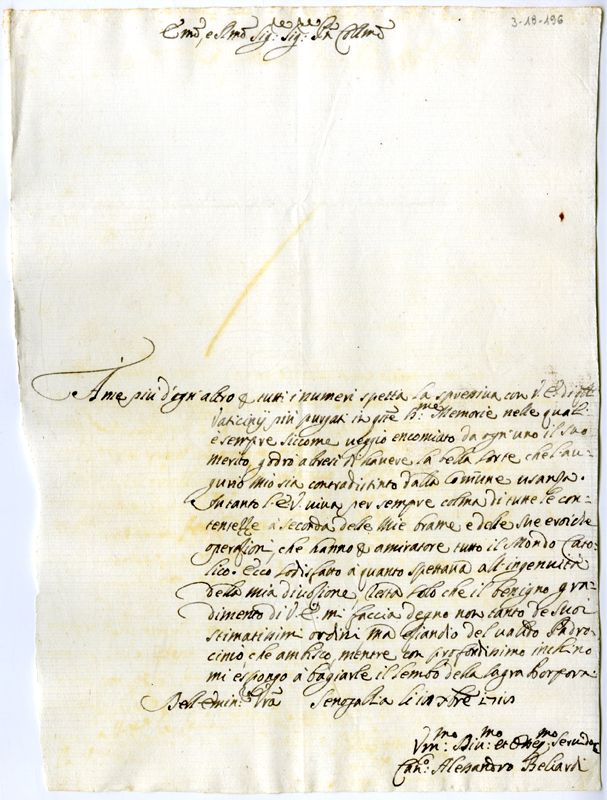 3-18-196
Emo, e Rmo Sig: Sig: Pn Collmo
A me più d'ogn' altro p tutti i numeri spetta la con V. E. di
Vaticinij più purgati in qste Me Memorie nelle quali
e sempre siccome veggio encomiato da ogn' uno il suo
merito, godrò altresi d' havere la bella sorte che l' au-
gurio mio sia contradistinto dalla Comune usanza.
Intanto l' E. V. viva per sempre colma di tutte le con-
tentezze a seconda delle mie brame e delle sue eroiche
operazioni, che hanno p amiratore tutto il Mondo Cato-
lico. Ecco sodisfatto a quanto spettava all' ingenuità
della mia divozione. Resta solo che il benigno gra-
dimento di V. E. mi faccia degno non tanto de suoi
stimatissimi ordini ma eziandio del valido Padro-
cinio che ambisco, mentre con profondissimo inchino
mi espongo a bagiarle il lembo della sagra Porpora
Dell' Emin: Vra Senogallia li Xbre
Vm: Div: et Oblig: Servidore
Cano: Alessandro Beliardi